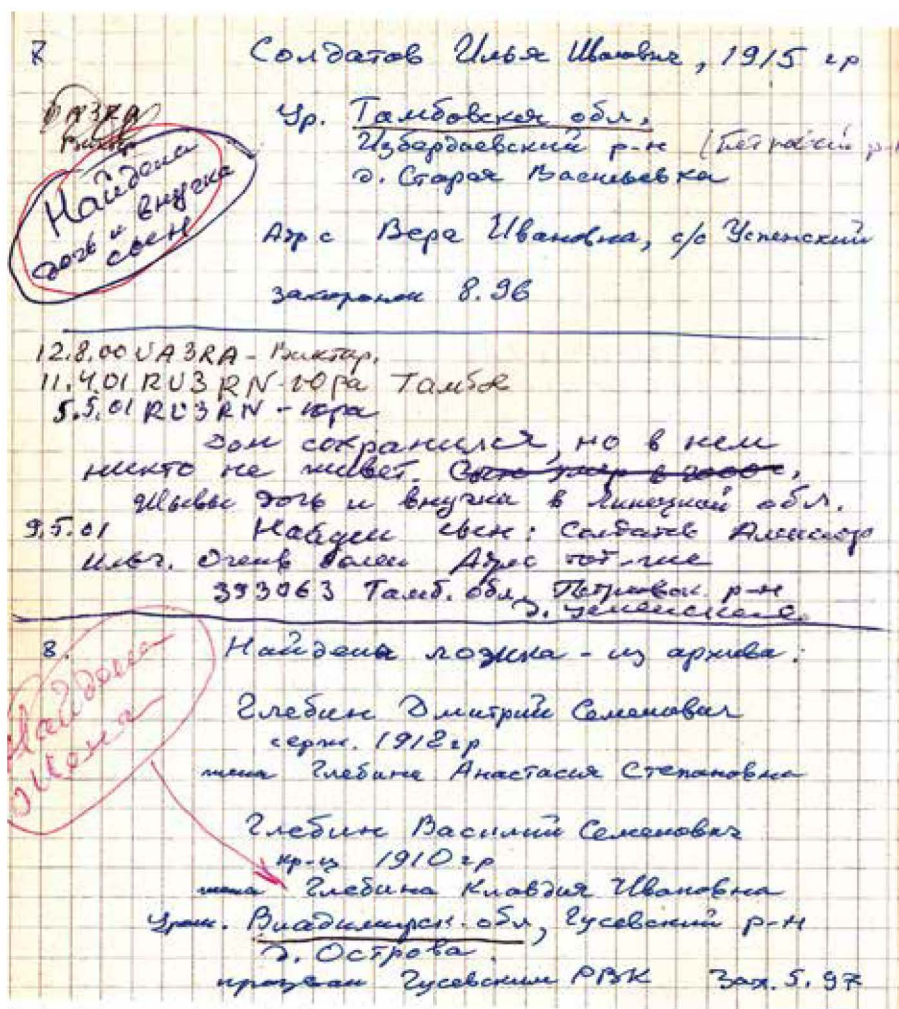 7
Солдатов Илья Иванович, 1915 гр
UA3RA
Виктор
Ур. Тамбовская обл.
Избердеевский р-н (Петровский р-н
д. Старая Васильевка
Найдена
дочь и внучка
сын
Адр с Вера Ивановна, с/с Успенский
захоронен 8.96
12.8.00 UA3RA - Виктор.
11.4.01 RU3RN - Юра Тамбов
5.5.01 RU3RN - Юра
Дом сохранился, но в нем
никто не живет. Сын умер в 2000г.
Живы дочь и внучка в Липецкой обл.
9.5.01 Найден сын: Солдатов Александр
Ильич. Очень болен Адрес тот-же
393063 Тамб. обл. Петровск. р-н
8.
Найдена ложка - из архива:
Найдена
жена
Глебин Дмитрий Семенович
серж. 1912 гр
жена Глебина Анастасия Степановна
Глебин Василий Семенович
кр-ц 1910 гр
жена Глебина Клавдия Ивановна
Урож. Владимирск. обл, Гусевский р-н
д. Острова
призван Гусевским РВК Зах. 5.97